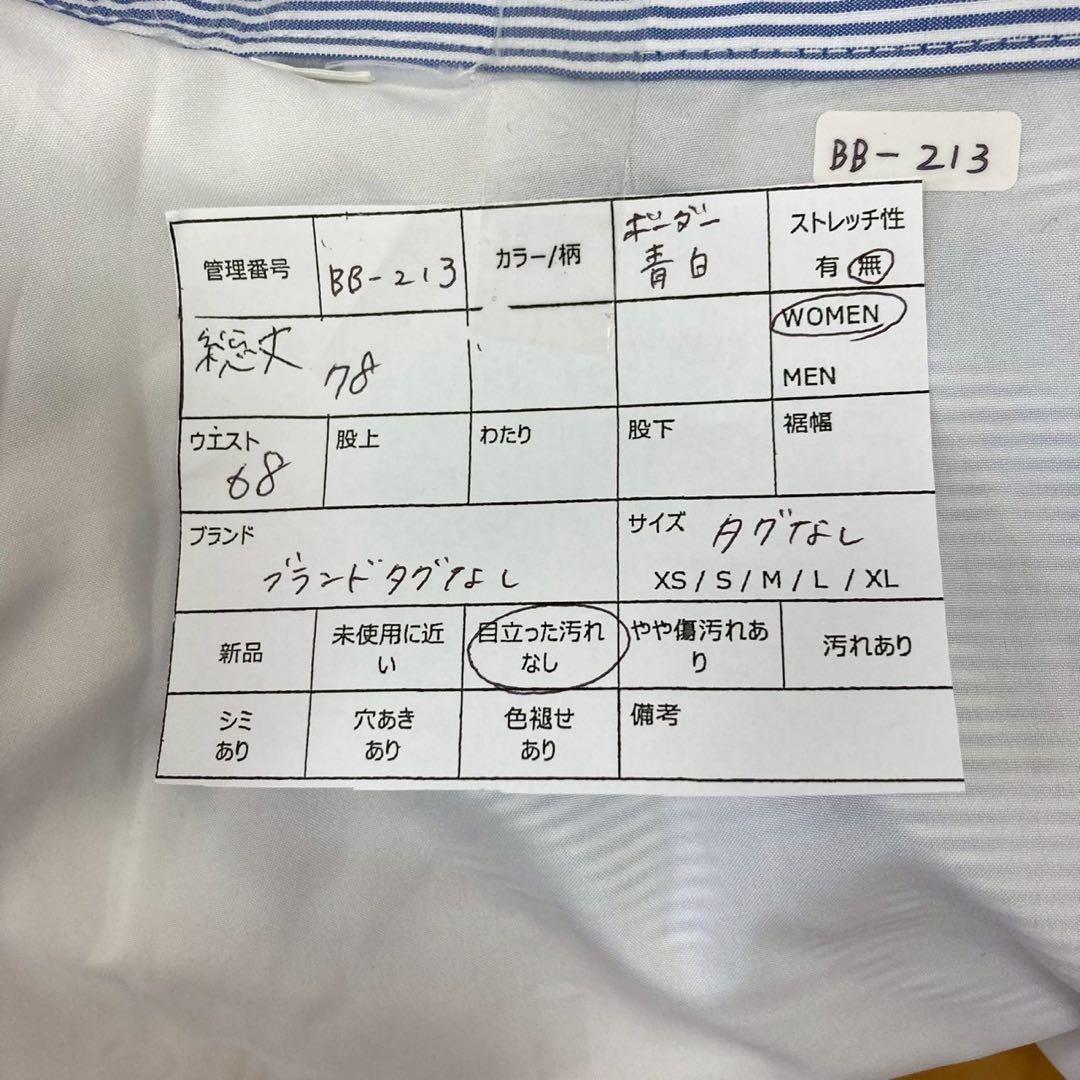 BB-213
管理番号
BB-213
カラー/柄
ボーダー
青白
ストレッチ性
有 無
総丈
78
WOMEN
MEN
ウエスト
68
股上
わたり
股下
裾幅
ブランド
ブランドタグなし
サイズ タグなし
XS / S / M / L / XL
新品
未使用に近
い
目立った汚れ
なし
やや傷汚れあ
り
汚れあり
シミ
あり
穴あき
あり
色褪せ
あり
備考